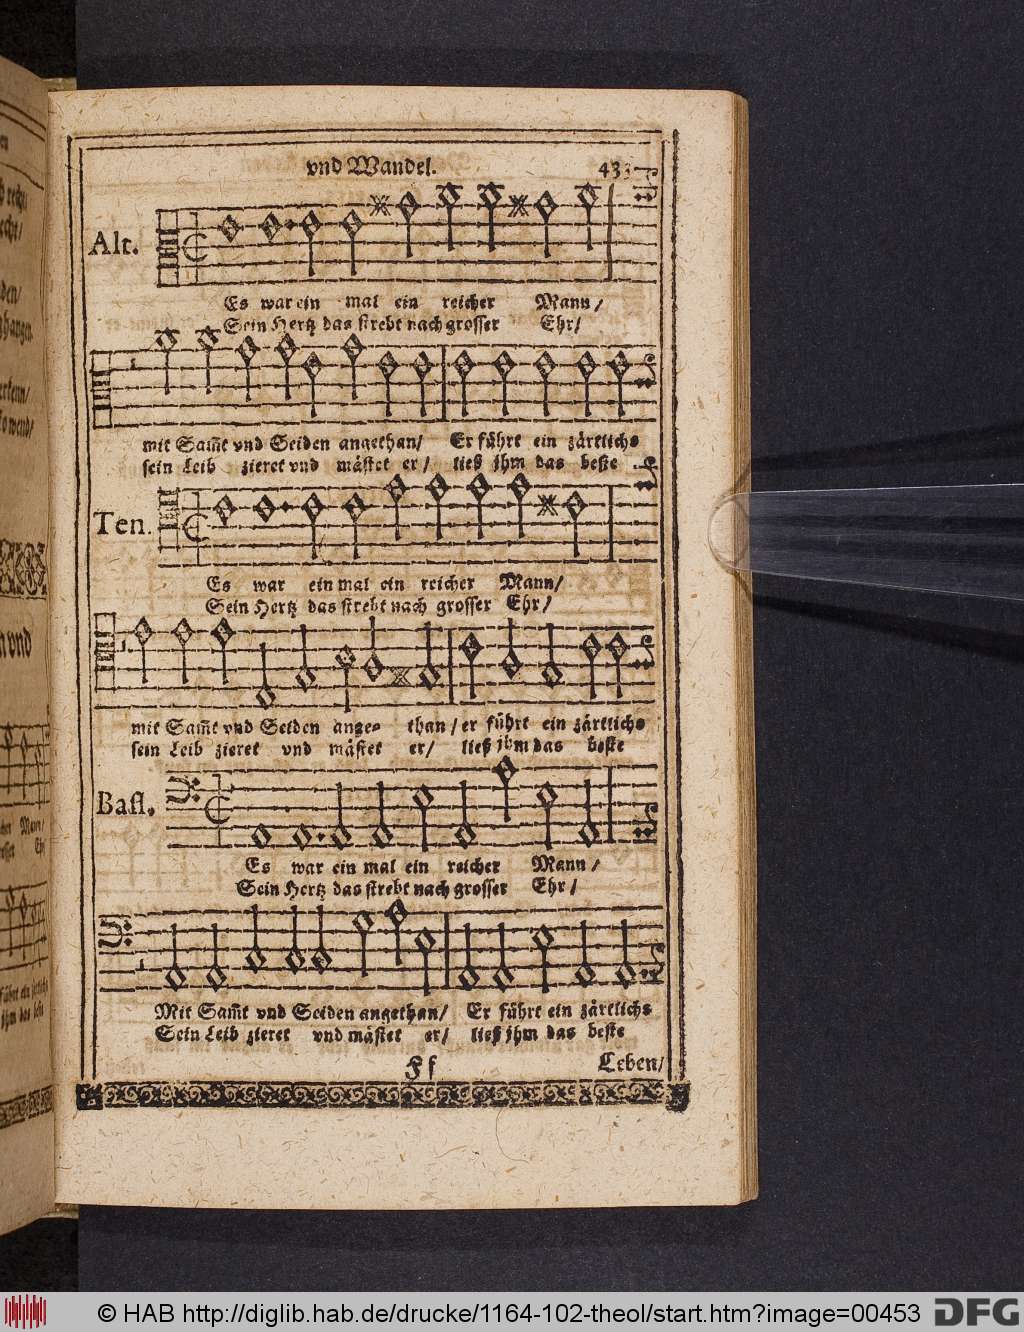 vnd Wandel.
Alt.
Es war ein mal ein reicher Mann /
Sein Hertz das strebt nach grosser Ehr/
mit Sam̃t vnd Seiden angethan/ Er führt ein zärtlichs
sein Leib zieret vnd mästet er/ ließ jhm das beste
Ten.
Es war ein mal ein reicher Mann/
Sein Hertz das strebt nach grosser Ehr/
mit Sam̃t vnd Seiden ange- than/ er führt ein zärtlichs
sein Leib zieret vnd mästet er/ ließ jhm das beste
Bass.
Es war ein mal ein reicher Mann /
Sein Hertz das strebt nach grosser Ehr /
Mit Sam̃t vnd Seiden angethan/ Er führt ein zärtlichs
Sein Leib zieret vnd mästet er/ ließ jhm das beste
Ff Leben/
© HAB http://diglib.hab.de/drucke/1164-102-theol/start.htm?image=00453 DFG